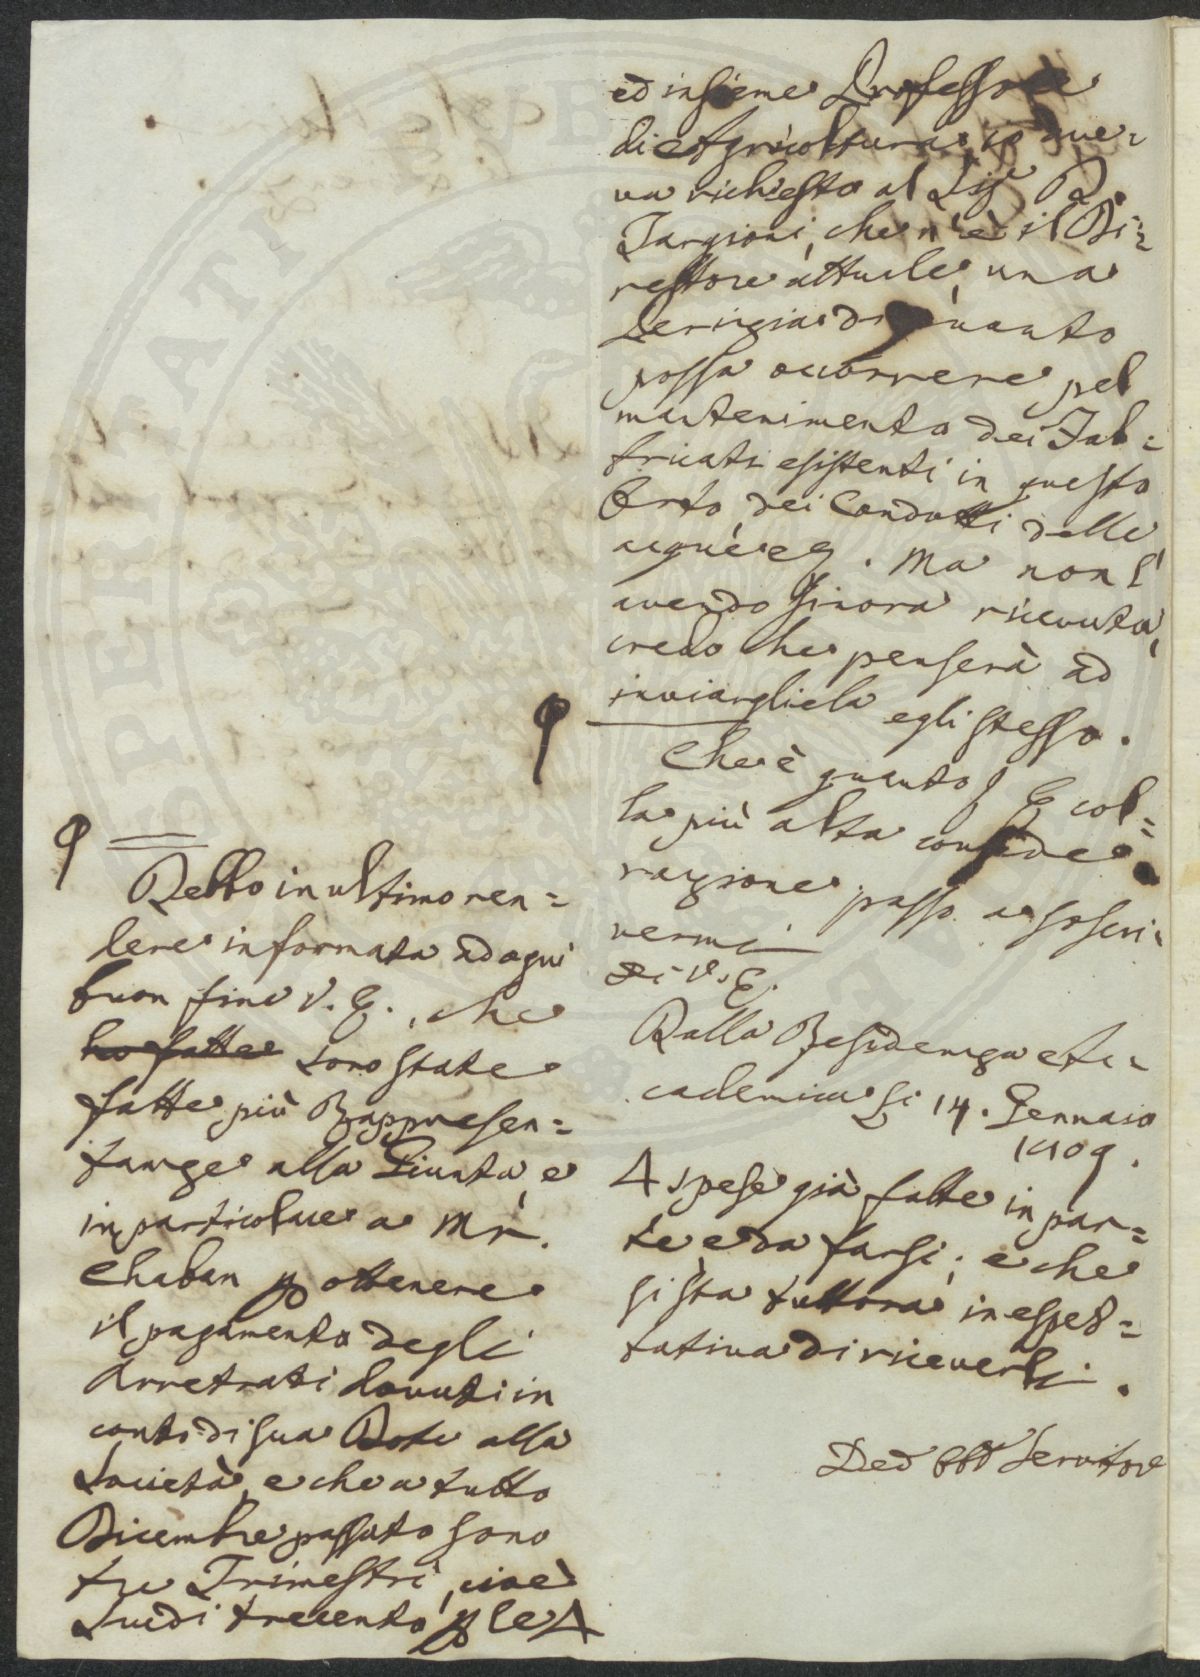 ed insieme Professore
di Agricoltura, io ave=
va richiesto al Sig.r D.
Targioni, che n'è il Di=
rettore attuale, una
Perizia di quanto
possa occorrere pel
mantenimento dei Fab=
bricati esistenti in questo
Orto, dei Condotti delle
acque ec. Ma non l'
avendo finora ricevuta,
credo che penserà ad
inviargliela egli stesso.
Che è quanto, e col=
la più alta conside=
razione passo a soscri=
vermi
Di V. E.
Dalla Residenza Ac=
cademica li 14. Gennaio
1809.
φ
Debbo in ultimo ren=
dere informata ad ogni
buon fine V. E., che
ho fatte sono state
fatte più Rappresen=
tanze alla Giunta, e
in particolare a Mr.
Chaban p ottenere
il pagamento degli
Arretrati dovuti in
conto di sua Dote alla
Società, e che a tutto
Dicembre passato sono
tre Trimestri, cioè
Scudi trecento p le
spese già fatte in par=
te, e da farsi; e che
si sta tuttora in espet=
tativa di riceverli.
Dev Obb Servitore